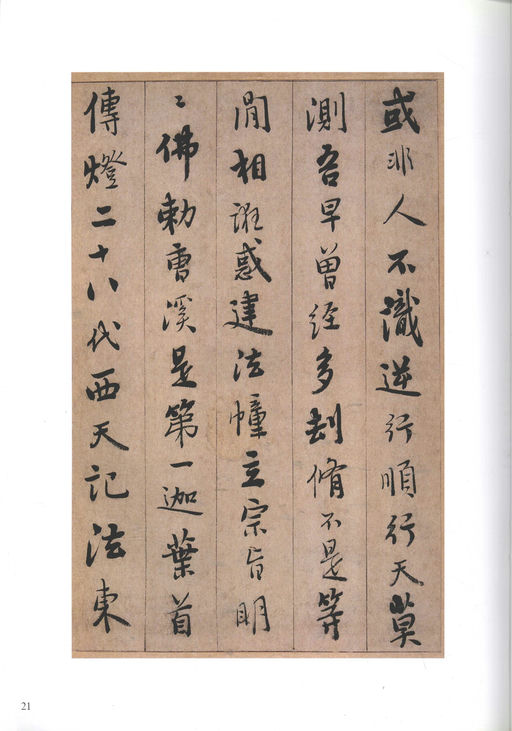 或非人不識逆行順行天莫
測吾早曾經多刧脩不是等
閒相誑惑建法幢立宗旨明
〻佛勅曹溪是第一迦葉首
傳燈二十八代西天記法東
21